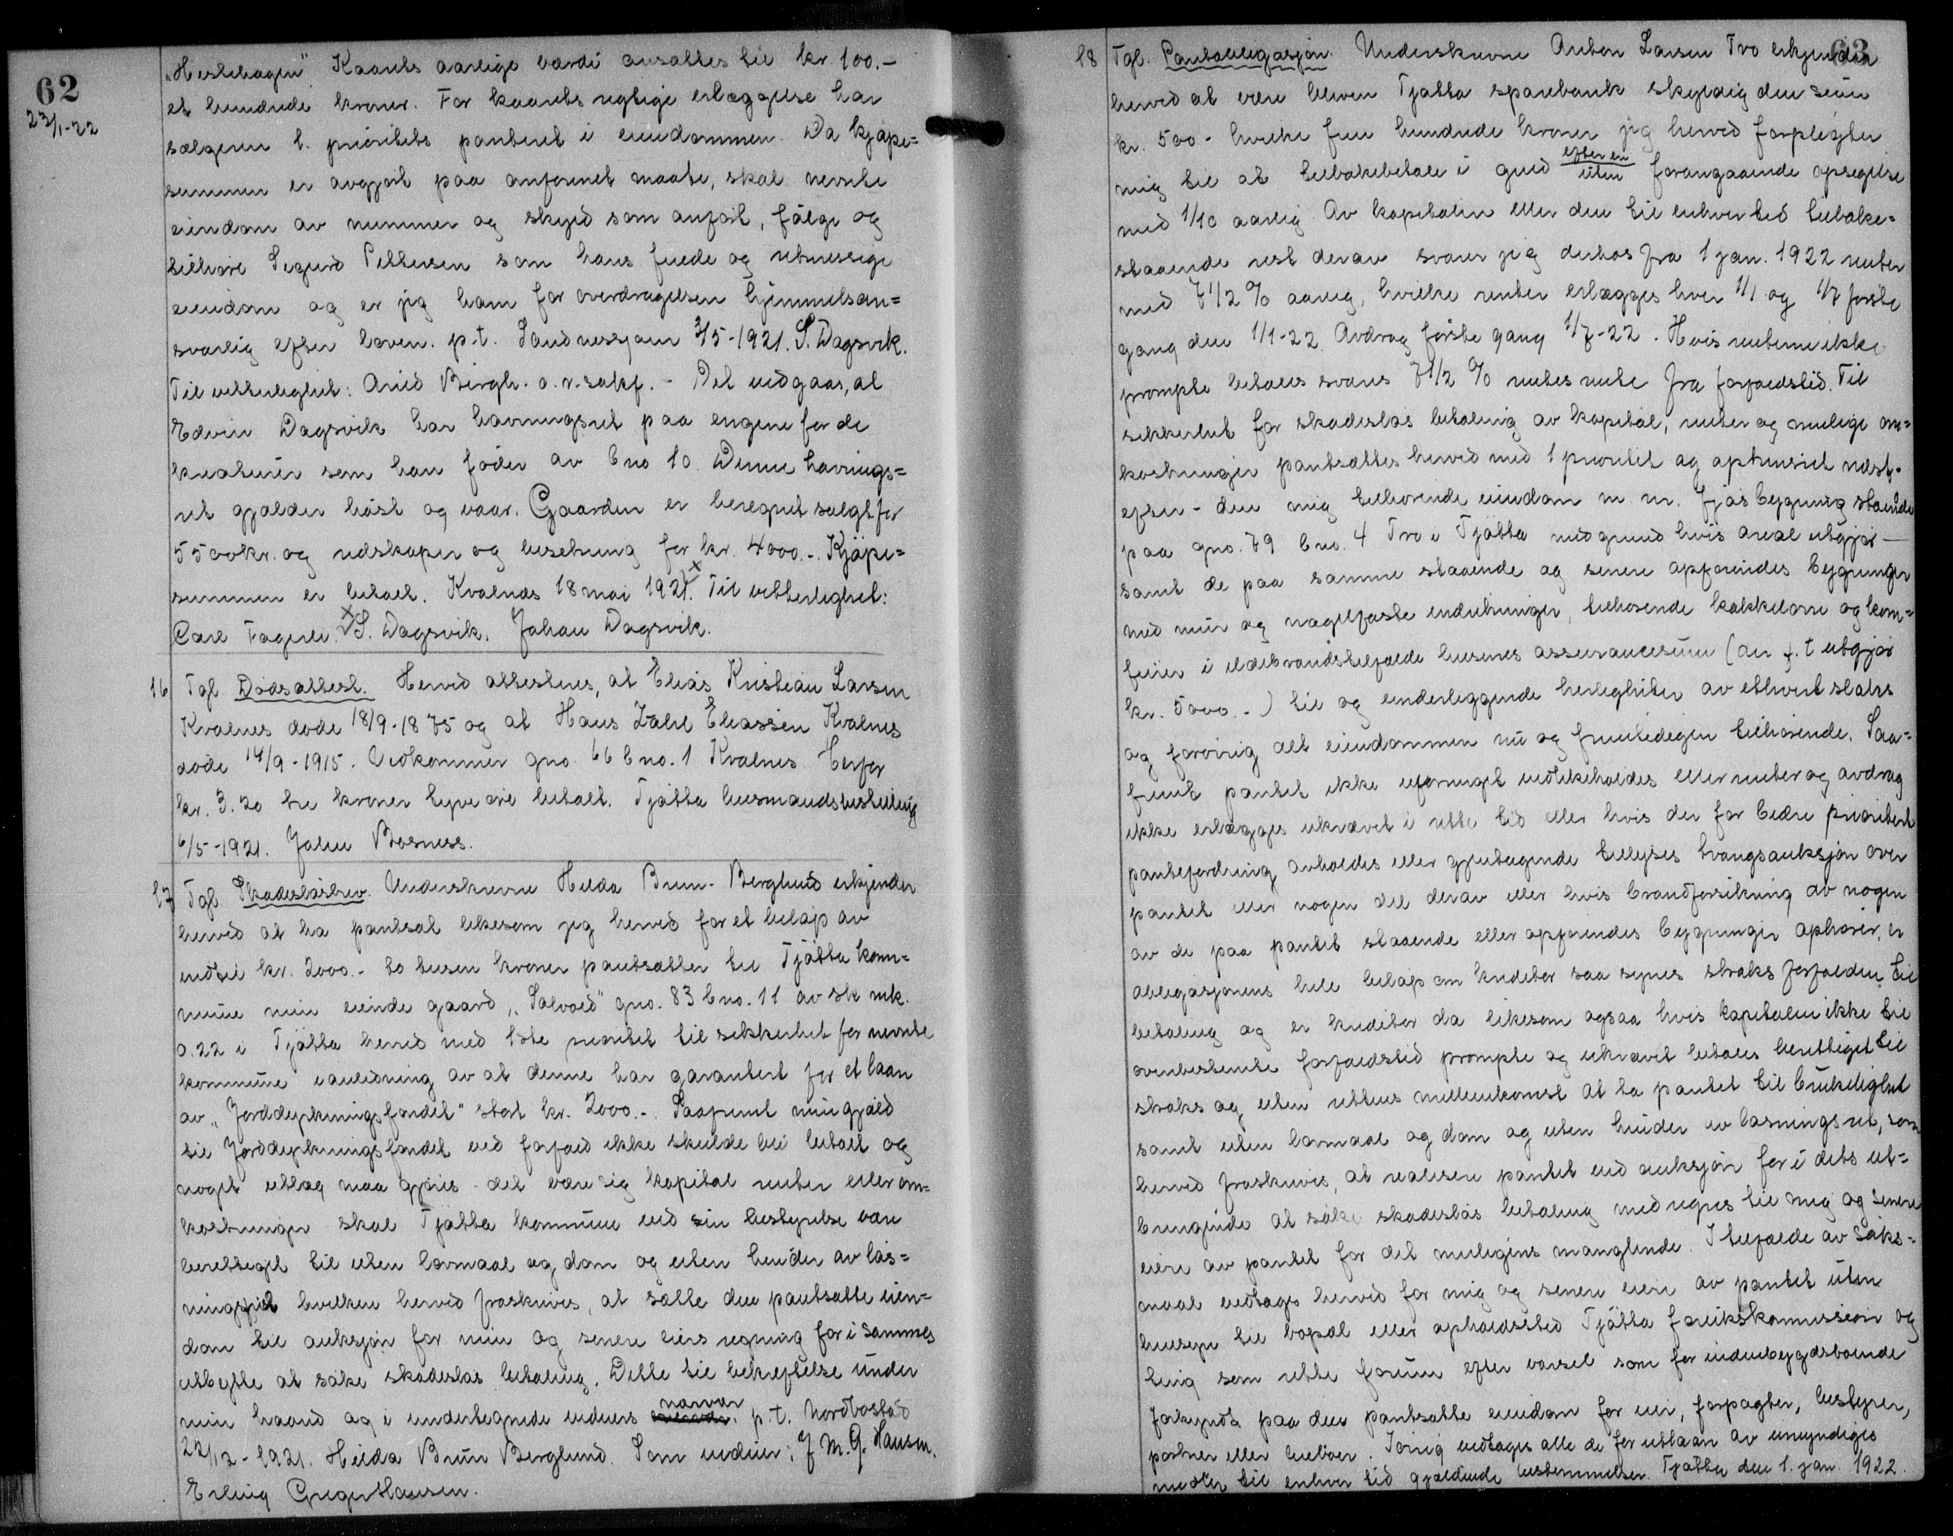 62
23/1-22
"Hestehagen" Kaarets aarlige værdi ansættes til kr. 100.-
et hundrede kroner. For kaarets rigtige erlæggelse har
sælgeren 1. prioritets panteret i eiendommen. Da kjøpe=
summen er avgjort paa anførte maate, skal nevnte
eiendom av nummer og skyld som anført, følge og
tilhøre Sigurd Pettersen som hans fuede og retmessige
eiendom og er jeg ham for overdragelsen hjemmelsan=
svarlig efter loven. p.t. Sandnessjøen 3/5-1921. S. Dagsvik.
Til vitterlighet: Arvid Bergh. o.r.sakf. - Det vedgaaes, at
Edvin Dagsvik har havningsret paa engene for de
kreaturer som han føder av bno 10. Denne havnings=
ret gjælder høst og vaar. Gaarden er beregnet solgt for
5500kr. og redskaper og besetning for kr. 4000.- Kjøpe=
summen er betalt. Kvalnes 18 mai 1921.x Til vitterlighet:
Carl Fagerli. x S. Dagsvik. Johan Dagsvik.
16 Tgl. Dødsattest. Herved attesteres, at Elias Kristian Larsen
Kvalnes døde 18/9-1875 og at Hans Zahl Eliassen Kvalnes
døde 14/9-1915. Vedkommer gno. 66 bno. 1 Kvalnes. Herfor
kr. 3.20 tre kroner tyve øre betalt. Tjøtta lensmandsbestilling
6/5-1921. Johan Bosness.
17 Tgl. Skadesløsbrev. Underskrevne Hilda Bruun-Berglund erkjender
herved at ha pantsat likesom jeg herved for et beløp av
indtil kr. 2000.- to tusen kroner pantsætter til Tjøtta kom=
mune min eiende gaard "Solvold" gno. 83 bno. 11 av sk mk.
0.22 i Tjøtta herred med 1ste prioritet til sikkerhet for nevnte
kommune i anledning av at denne har garantert for et laan
av "Jorddyrkningsfondet" stort kr. 2000.-. Saafremt min gjæld
til Jorddyrkningsfondet ved forfald ikke skulde bli betalt og
noget utlæg maa gjøres det være sig kapital renter eller om=
kostninger skal Tjøtta kommune ved sin bestyrelse være
berettiget til uten lovmaal og dom og uten hinder av løs=
ningsret hvilken herved fraskrives, at sætte den pantsatte eien=
dom til auksjon for min og senere eiers regning for i sammes
utbytte at søke skadesløs betaling. Dette til bekreftelse under
min haand og i undertegnede vidners nærvær p.t. Nordbostad
22/12-1921. Hilda Bruun Berglund. Som vidner: J. M. G. Hansen.
Erling Greger Hansen.
63
18 Tgl. Pantobligasjon. Underskrevne Anton Larsen Tro erkjender
herved at være bleven Tjøtta sparebank skyldig den sum
kr. 500- hvilke fem hundrede kroner jeg herved forpligter
mig til at tilbakebetale i guld efter en uten forangaaende opsigelse
med 1/10 aarlig. Av kapitalen eller den til enhver tid tilbake=
staaende rest derav svarer jeg derhos fra 1 jan. 1922 renter
med 7 1/2 % aarlig, hvilke renter erlægges hver 1/1 og 1/7 første
gang den 1/1-22. Avdrag første gang 1/7-22. Hvis renterne ikke
prompte betales svares 7 1/2 % rentes rente fra forfaldstid. Til
sikkerhet for skadesløs betaling av kapital, renter og mulige om=
kostninger pantsættes herved med 1 prioritet og oprykningsret næst-
efter - den mig tilhørende eiendom m. m. Fjøsbygning staaende
paa gno. 79 bno. 4 Tro i Tjøtta med grund hvis areal utgjør —
samt de paa samme staaende og senere opførendes bygninger
med mur og nagelfaste indretninger, tilhørende kakkelovne og kom=
furer i ildebrandstilfælde husenes assurancesum (der p.t. utgjør
kr. 5000.-) til og underliggende herligheter av ethvert slags
og forøvrig alt eiendommen nu og fremtidigen tilhørende. Saa=
fremt pantet ikke uforringet vedlikeholdes eller renter og avdrag
ikke erlægges ukrævet i rette tid eller hvis der for bedre prioritert
pantefordring avholdes eller gjentagende tillyses tvangsauksjon over
pantet eller nogen del derav eller hvis brandforsikring av nogen
av de paa pantet staaende eller opførendes bygninger ophører, er
obligasjonens hele beløp om kreditor saa synes straks forfalden til
betaling og er kreditor da likesom ogsaa hvis kapitalen ikke til
ovenbestemte forfaldstid prompte og ukrævet betales berettiget til
straks og uten rettens mellemkomst at ta pantet til brukelighet
samt uten lovmaal og dom og uten hinder av løsningsret, som
herved fraskrives, at realisere pantet ved auksjon for i dets ut=
bringende at søke skadesløs betaling med regres til mig og senere
eiere av pantet for det muligens manglende. I tilfælde av søks=
maal vedtages herved for mig og senere eiere av pantet uten
hensyn til bopæl eller opholdssted Tjøtta forlikskommission og
ting som rette forum efter varsel som for indenbygdsboende
forkyndt paa den pantsatte eiendom for eier, forpagter, bestyrer,
portner eller beboer. Iøvrig vedtages alle de for utlaan av umyndiges
midler til enhver tid gjældende bestemmelser. Tjøtta den 1. jan. 1922.